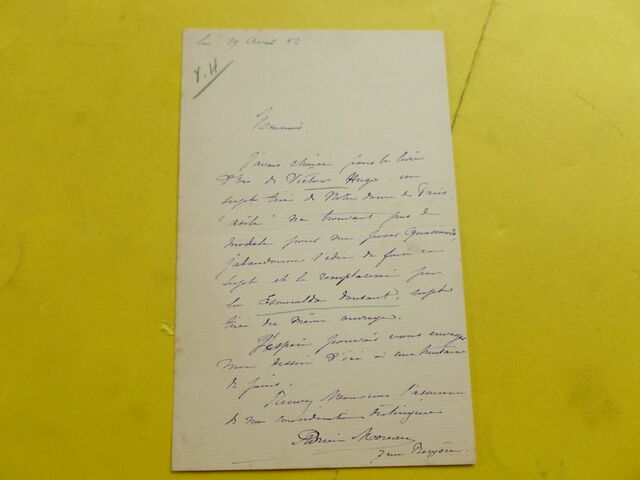 le 19 Avril 82.
V. H
Monsieur
J'avais choisi pour le livre
d'Or de Victor Hugo, un
sujet tiré de Notre dame de Paris.
"asile" ne trouvant pas de
modèle pour me poser Quasimodo,
j'abandonne l'idée de faire ce
sujet et le remplacerai par
la Esmeralda dansant, sujet
tiré du même ouvrage.
J'espère pouvoir vous envoyer
mon dessin d'ici à une huitaine
de jours.
Recevez Monsieur l'assurance
de ma considération distinguée
Adrien Moreau